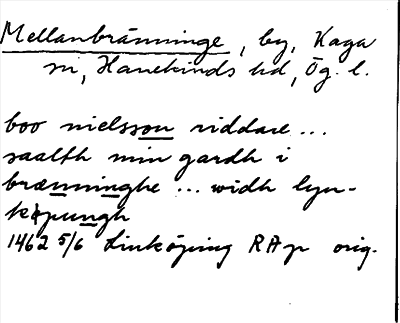 Mellanbränninge, by, Kaga
sn, Hanekinds hd, Ög. l.
boo nielsson riddare...
saalth min gardh i
brænninghe ... widh lyn-
køpungh
1462 5/6 Linköping RAp orig.